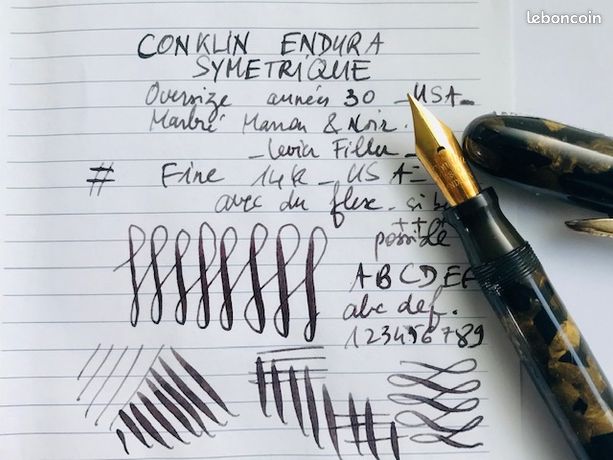 leboncoin
CONKLIN ENDURA
SYMETRIQUE
Oversize années 30 _ USA_
Marbré Marron & Noir.
_ Levier Filler _
# Fine 14k _ USA _
avec du flex. si
+++
possible
ABCDEF
abc def.
123456789